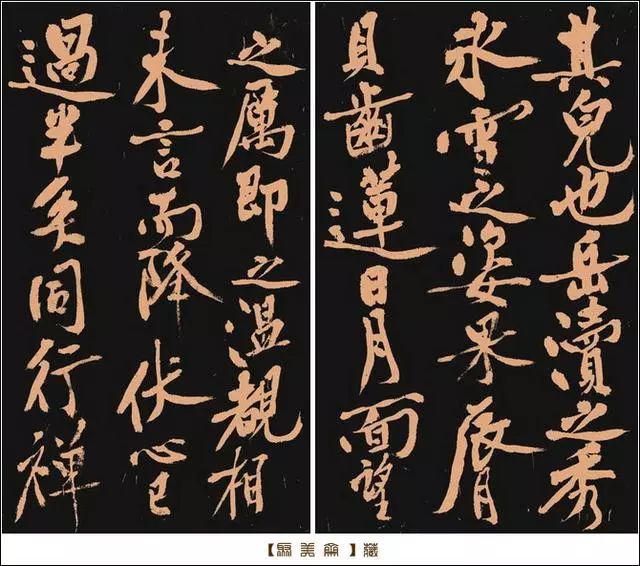 其皃也岳瀆之秀
氷雪之姿果脣
貝齒蓮目月面望
之厲即之溫覩相
未言而降伏心已
過半矣同行禅
美 】藏